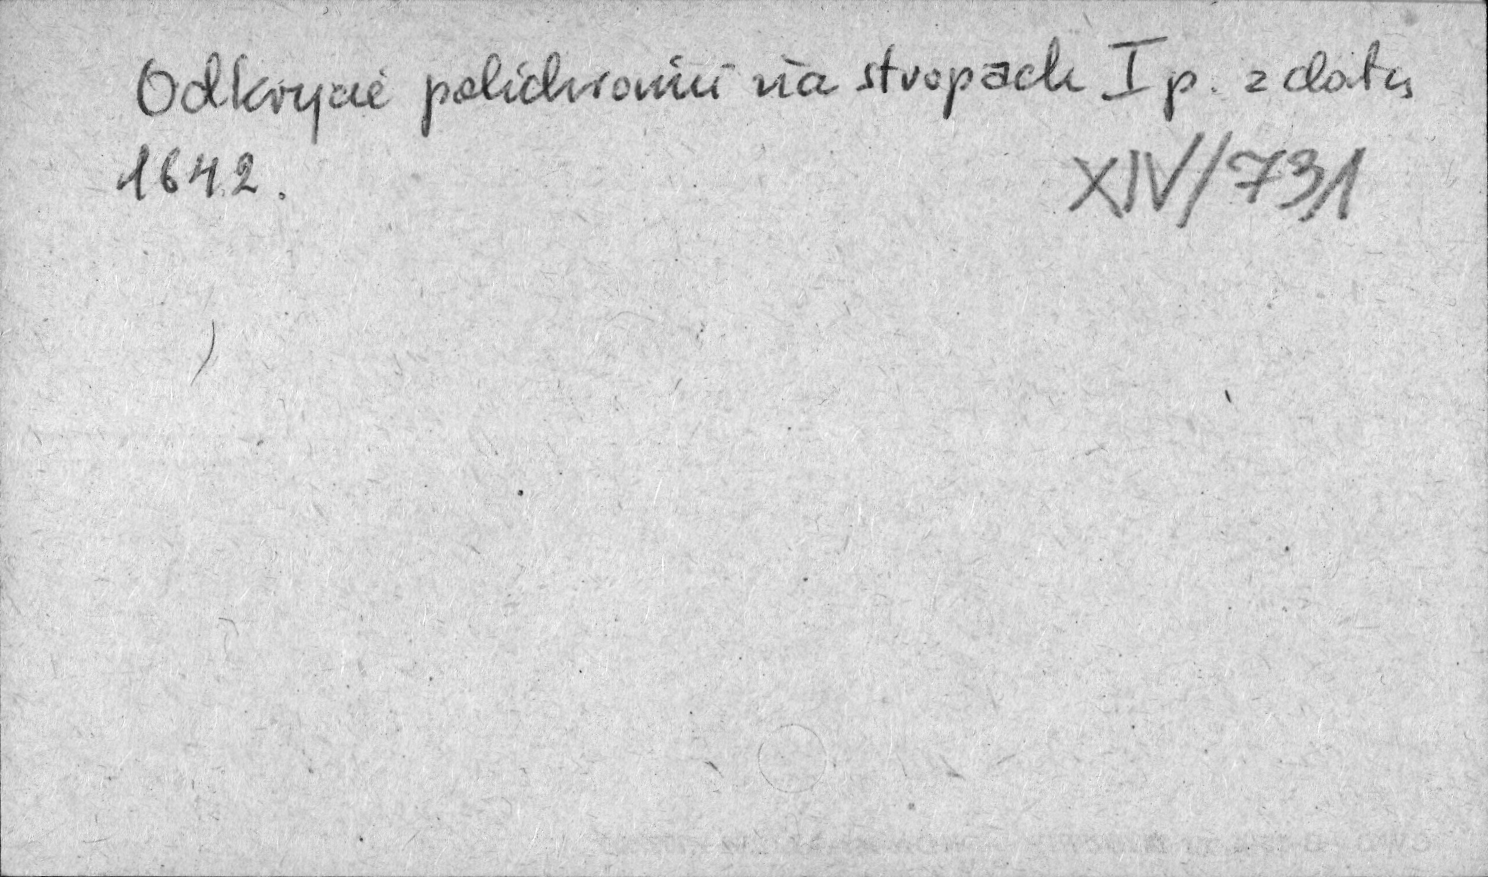 Odkrycie polichromii na stropach I p. z datą
1642.
XIV/731